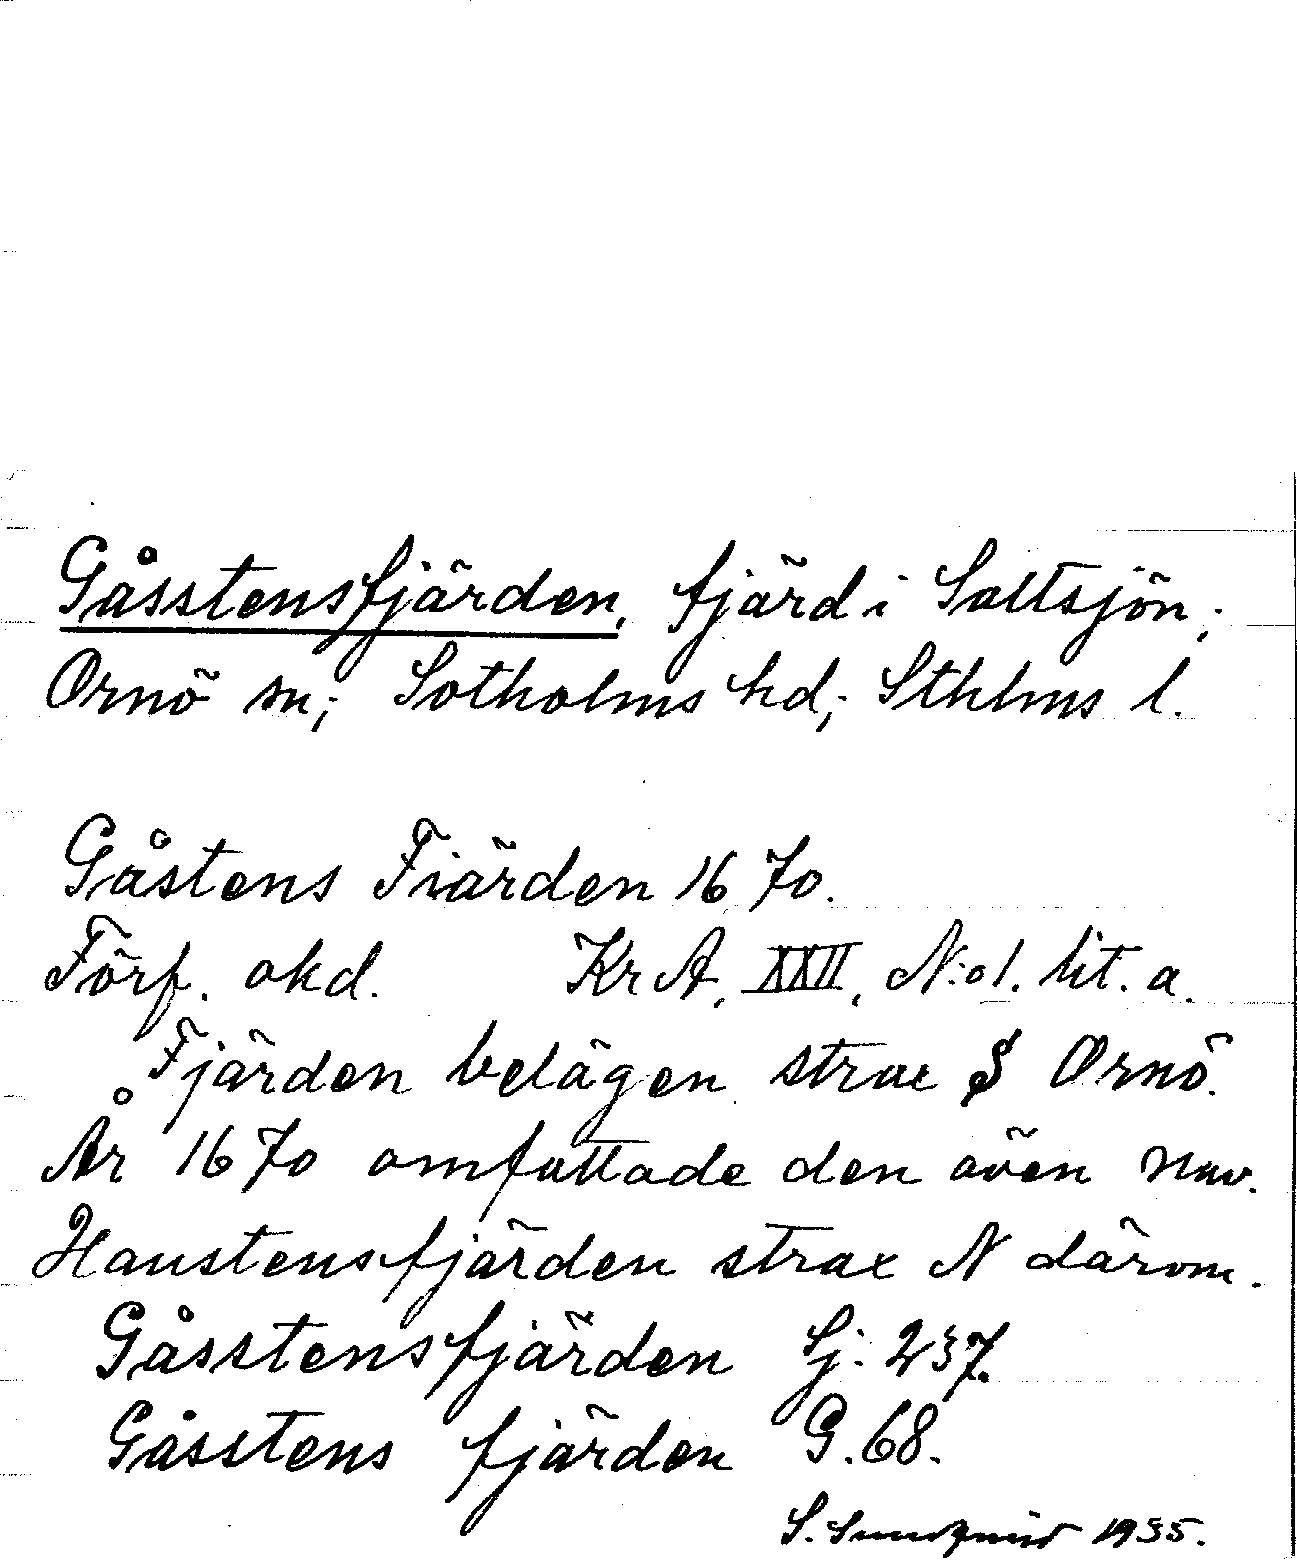 Gåsstensfjärden, fjärd i Saltsjön;
Ornö sn; Sotholms hd; Sthlms l.
Gåstens Fiärden 1670.
Förf. okd. KrA, XXII, N:o 1. lit. a.
Fjärden belägen strax S Ornö.
År 1670 omfattade den även nuv.
Hanstensfjärden strax N därom.
Gåsstensfjärden Sj. 237.
Gåsstens fjärden G. 68.
S. Sundqvist 1935.